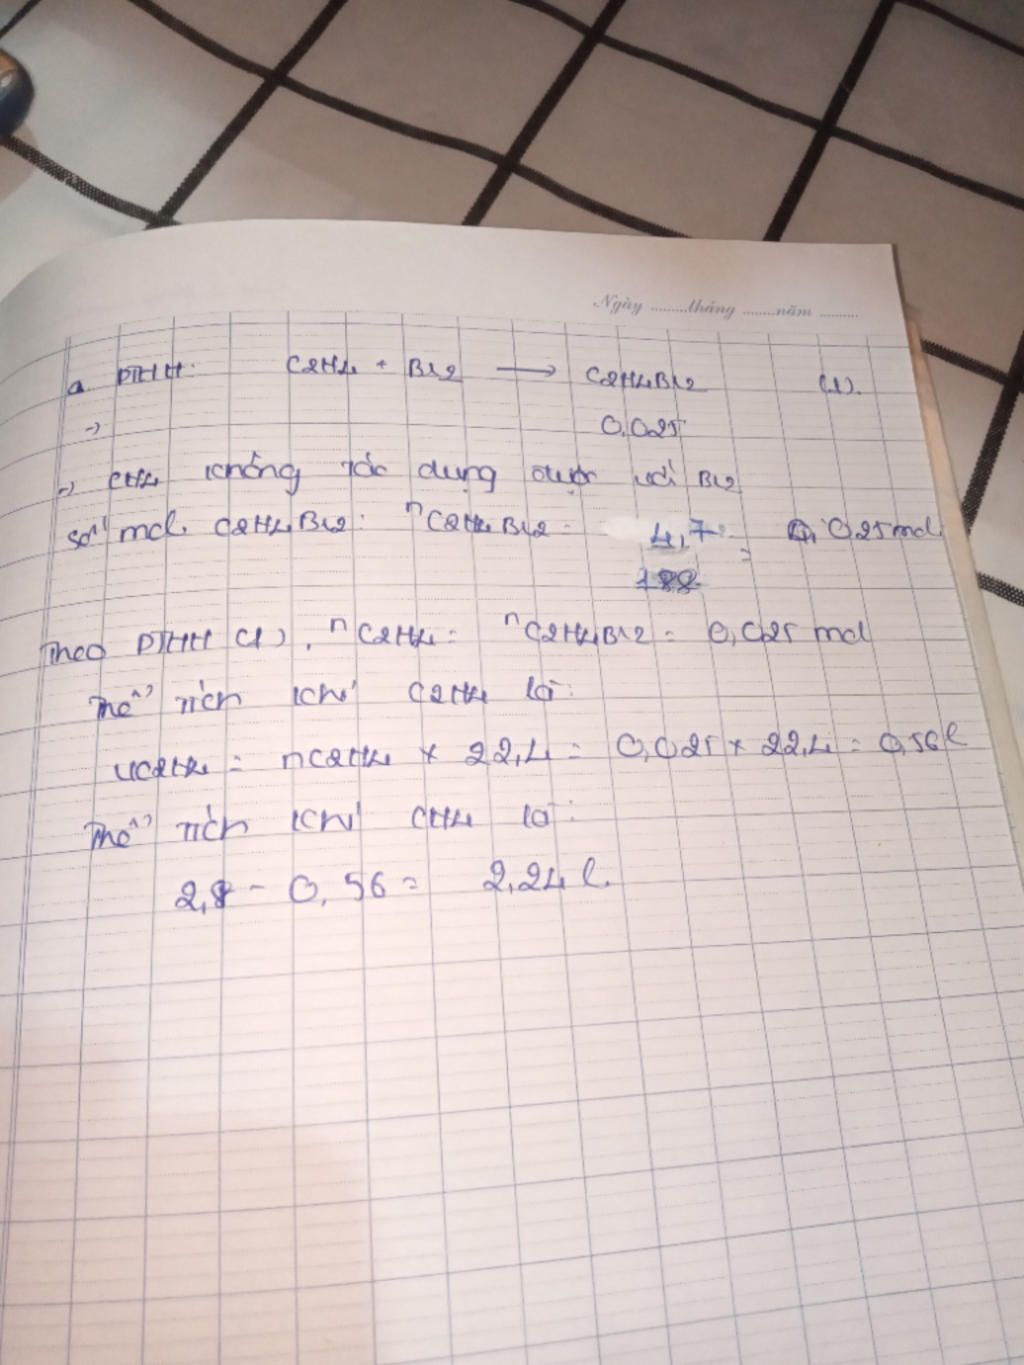 Ngày ........tháng .......năm ........
a. PTHH: C2H4 + Br2 → C2H4Br2 (1).
→ 0,025
→ CH4 không tác dụng được với Br2
số mol C2H4Br2: nC2H4Br2 = 4,7 / 188 = 0,025 mol
Theo PTHH (1), nC2H4 = nC2H4Br2 = 0,025 mol
Thể tích khí C2H4 là:
VC2H4 = nC2H4 × 22,4 = 0,025 × 22,4 = 0,56 l
Thể tích khí CH4 là:
2,8 - 0,56 = 2,24 l.